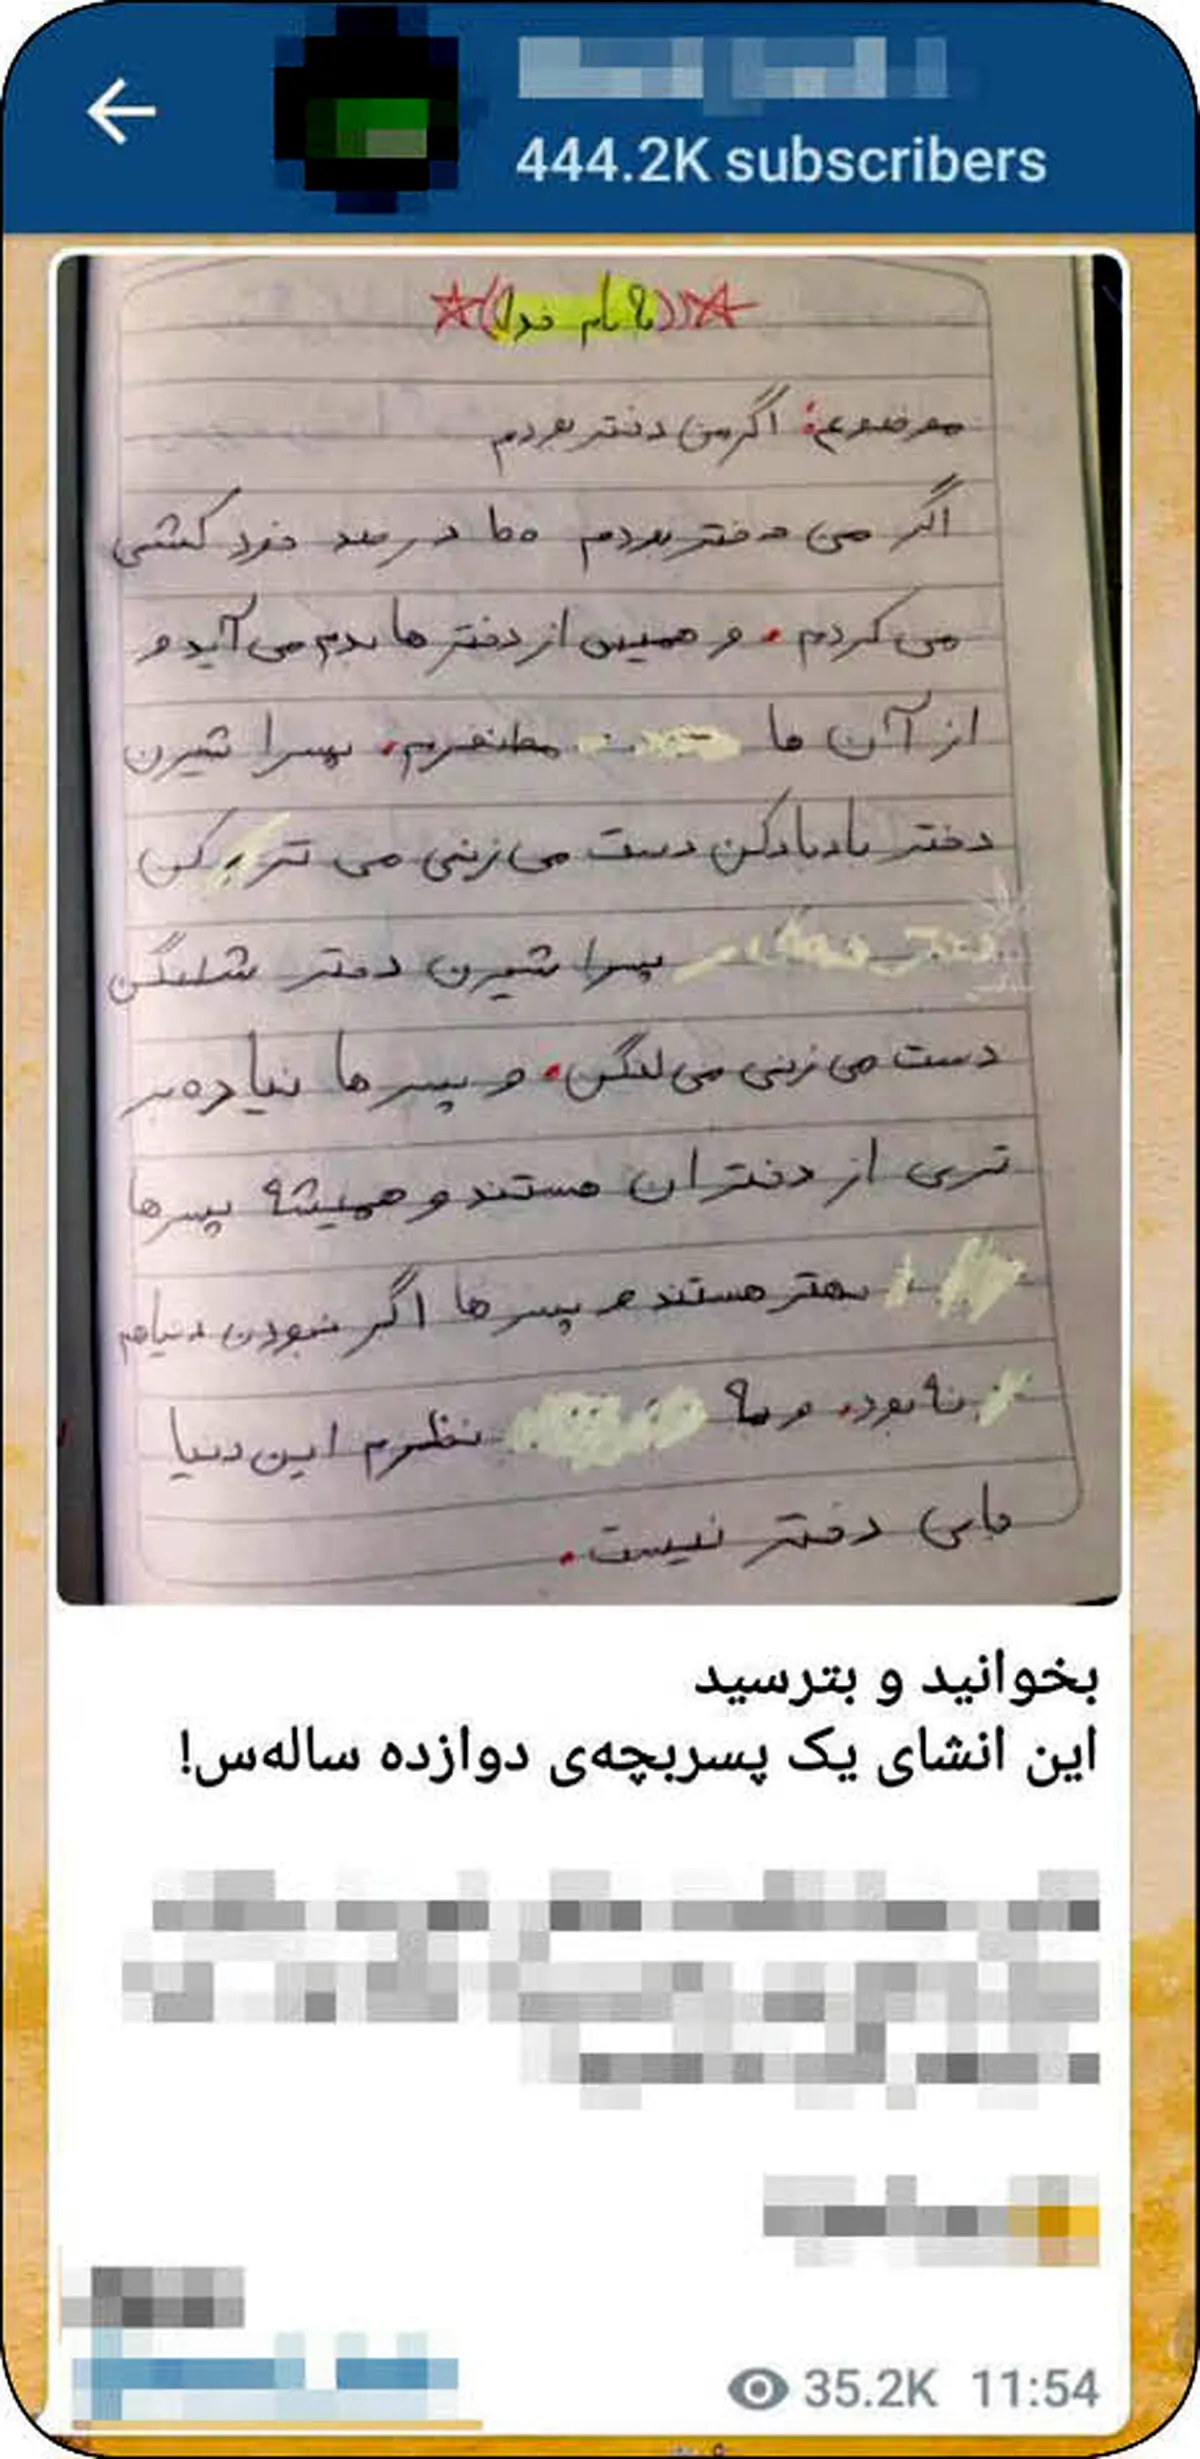 444.2K subscribers
((به نام خدا))
موضوع: اگر من دختر بودم
اگر من دختر بودم صد در صد خود کشی
می کردم. و همیین از دختر ها بدم می آید و
از آن ها متنفرم. پسرا شیرن
دختر بادبادکن دست می زنی می ترکن
پسرا شیرن دختر شلنگن
دست می زنی می لنگن. و پسر ها نیاده بر
تری از دختران هستند و همیشه پسرها
بهتر هستند و پسر ها اگر نبودن دنیاهم
نه بود. و به نظرم این دنیا
جایی دختر نیست.
بخوانید و بترسید
این انشای یک پسربچه‌ی دوازده ساله‌س!
35.2K 11:54